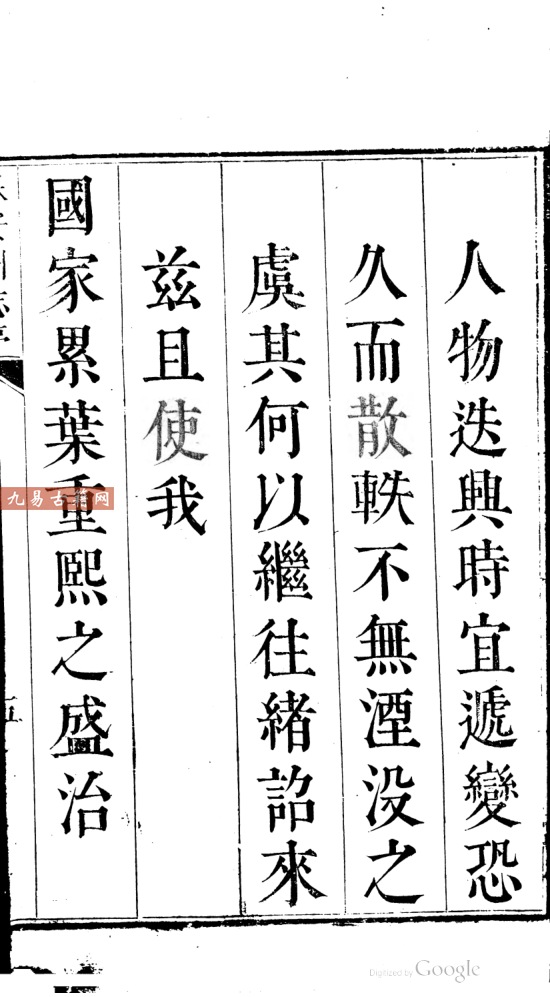 人物迭興時宜遞變恐
久而散軼不無湮没之
虞其何以繼往緒詔來
兹且使我
國家累葉重熙之盛治
九易古籍网
Digitized by Google